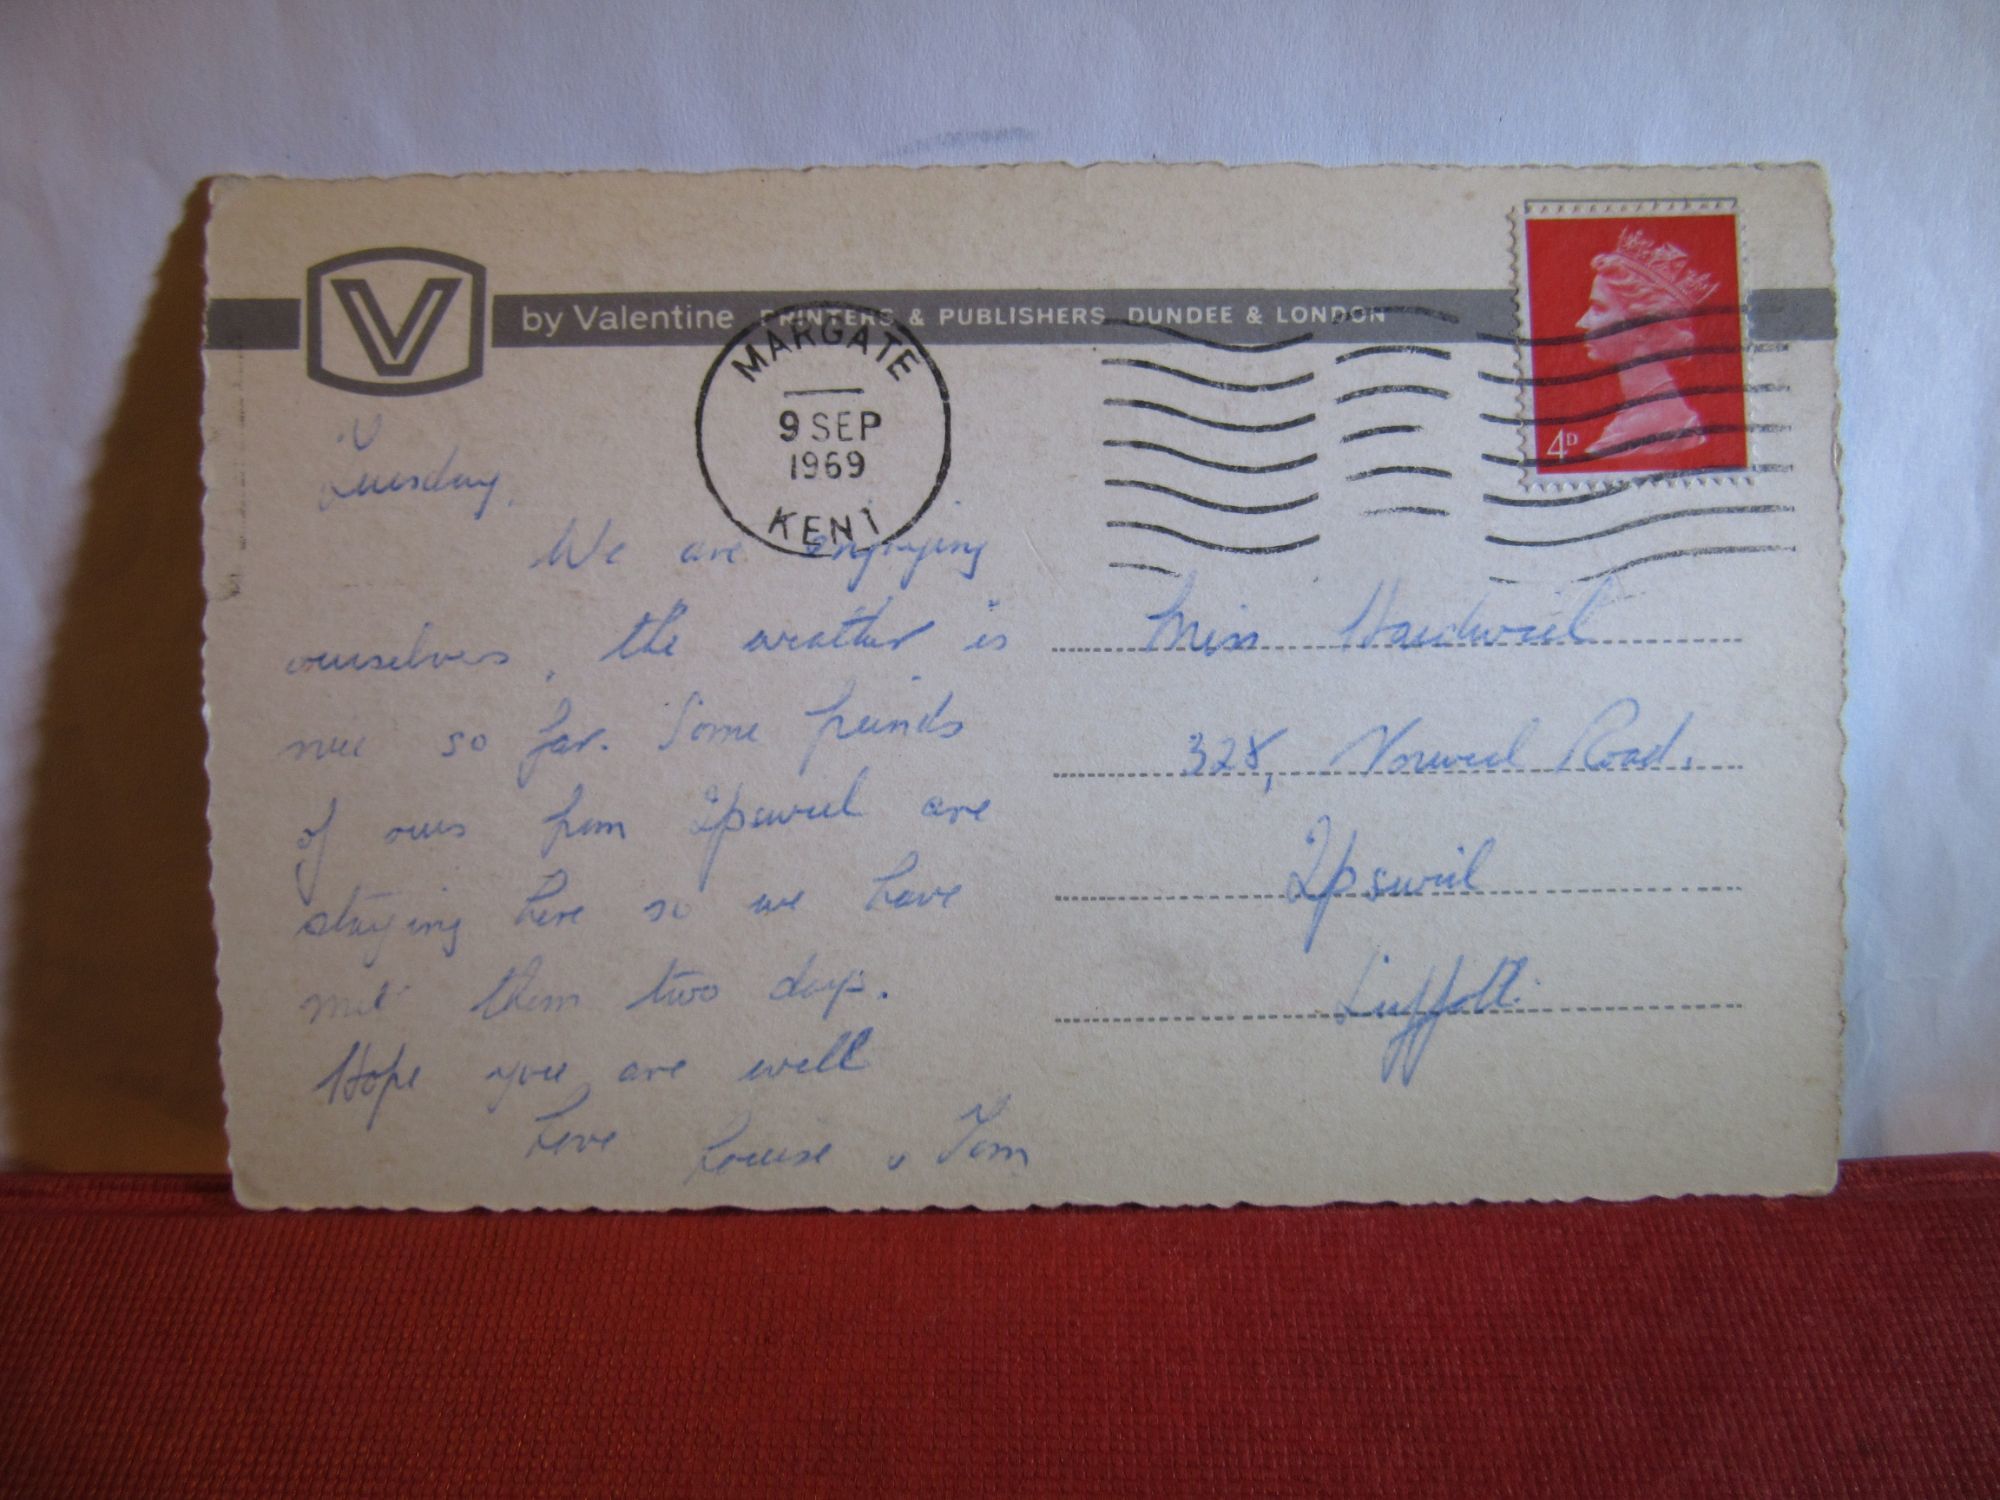 V
by Valentine PRINTERS & PUBLISHERS DUNDEE & LONDON
MARGATE
9 SEP
1969
KENT
4D
Tuesday.
We are enjoying
ourselves, the weather is
nice so far. Some freinds
of ours from Ipswich are
staying here so we have
met them two days.
Hope you are well
Love Louise & Tom
Miss
328, Norwich Road.
Ipswich
Suffolk.